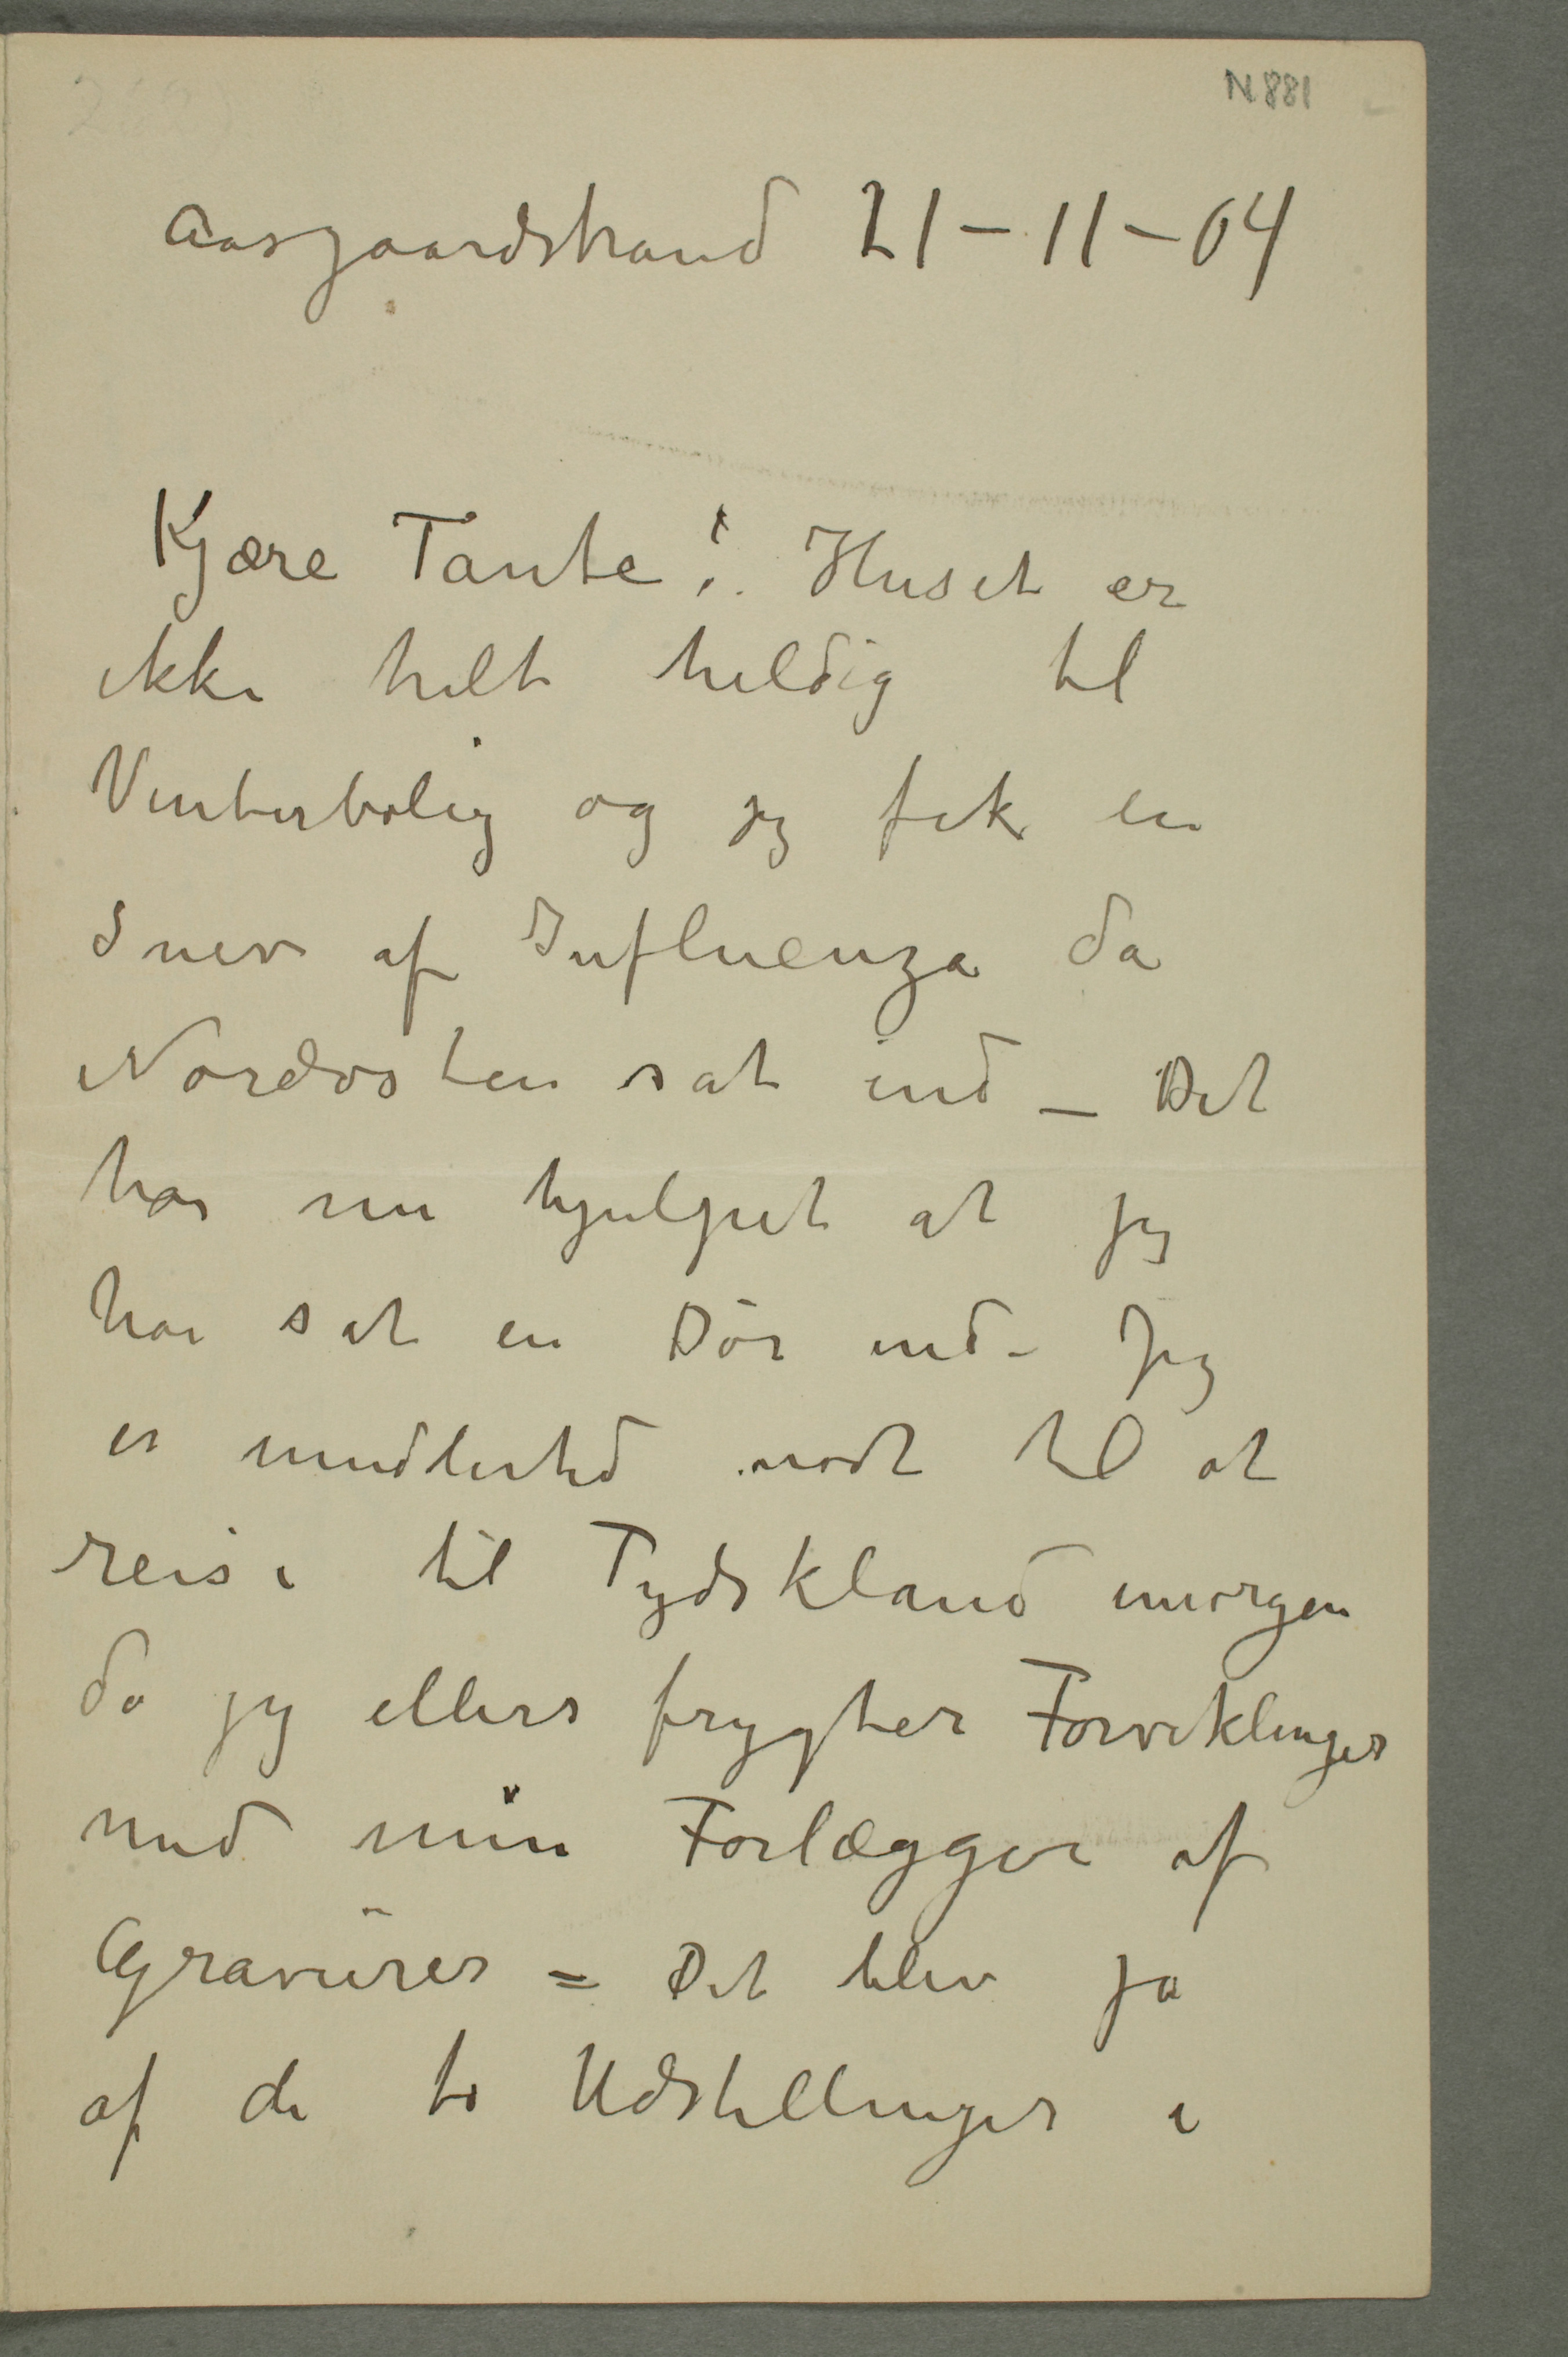 N 881
Aasgaardstrand 21–11–04
Kjære Tante! Huset er
ikke helt heldig til
Vinterbolig og jeg fik en
Snev af Influenza da
Nordosten sat ind – Det
har nu hjulpet at jeg
har sat en Dör ind – Jeg
er imidlertid nödt til at
reise til Tydskland imorgen
da jeg ellers frygter Forviklinger
med min Forlægger af
Gravürer = Det blev jo
af de to Udstillinger i